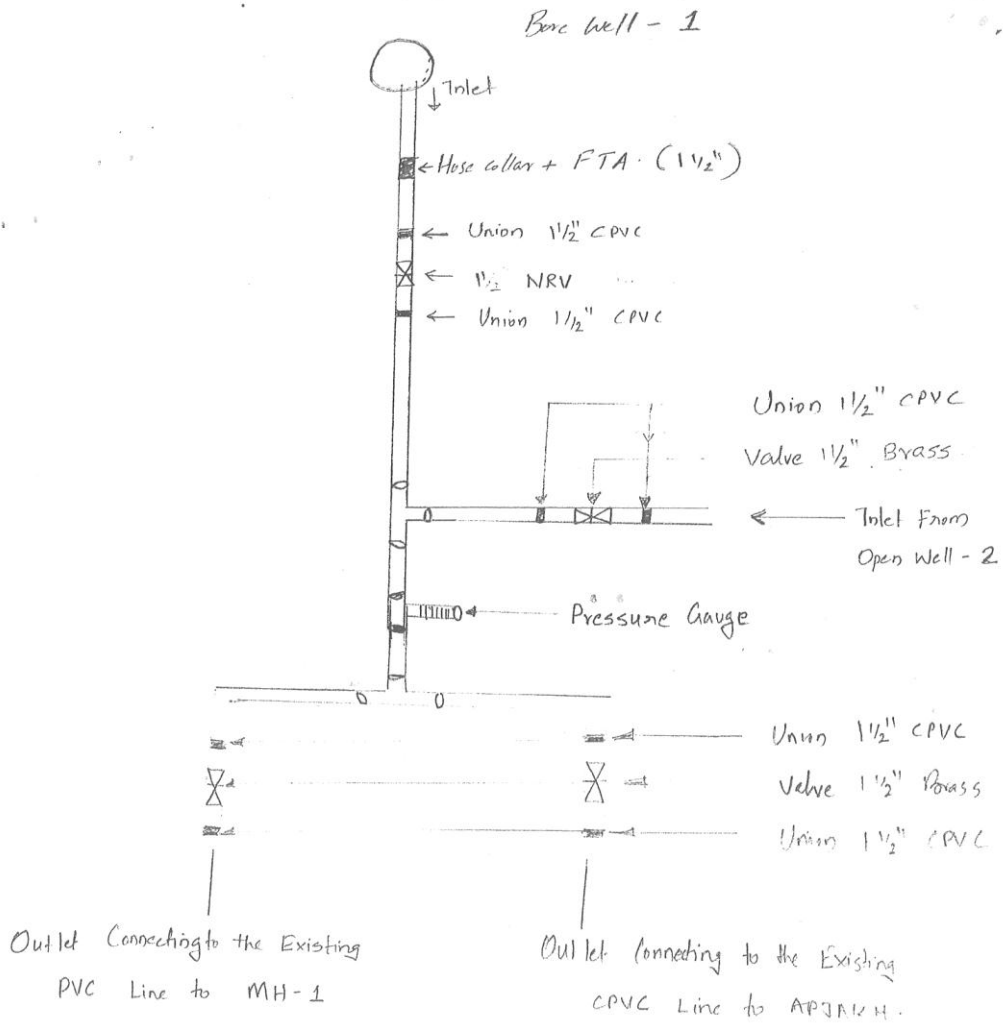 Bore Well - 1
Inlet
Hose collar + FTA. (1 1/2")
Union 1 1/2" CPVC
1 1/2 NRV
Union 1 1/2" CPVC
Union 1 1/2" CPVC
Valve 1 1/2" Brass
Inlet From
Open Well - 2
Pressure Gauge
Union 1 1/2" CPVC
Valve 1 1/2" Brass
Union 1 1/2" CPVC
Outlet Connecting to the Existing
PVC Line to MH-1
Outlet Connecting to the Existing
CPVC Line to APJAKH.